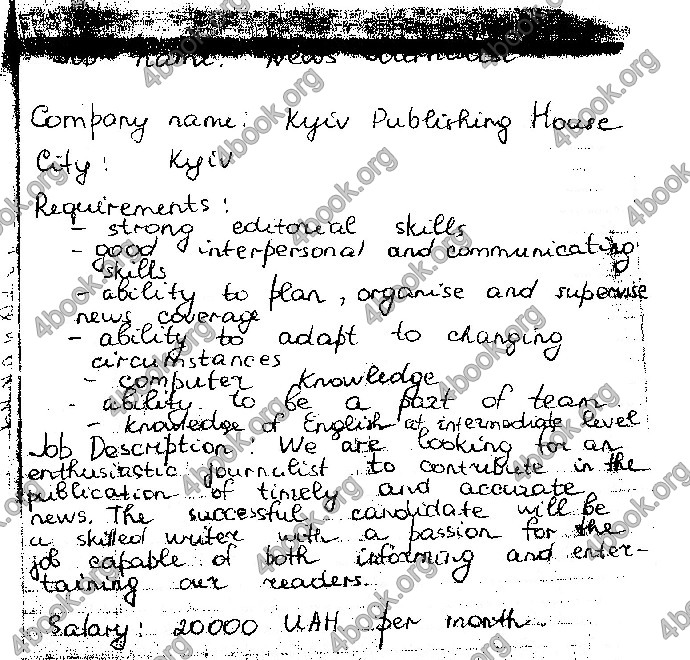 Job name: News Journalist
Company name: Kyiv Publishing House
City: Kyiv
Requirements:
- strong editorial skills
- good interpersonal and communicating
skills
- ability to plan, organise and supervise
news coverage
- ability to adapt to changing
circumstances
- computer knowledge
- ability to be a part of team
- knowledge of English at intermediate level
Job Description: We are looking for an
enthusiastic journalist to contribute in the
publication of timely and accurate
news. The successful candidate will be
a skilled writer with a passion for the
job capable of both informing and enter-
taining our readers.
Salary: 20000 UAH per month
4book.org